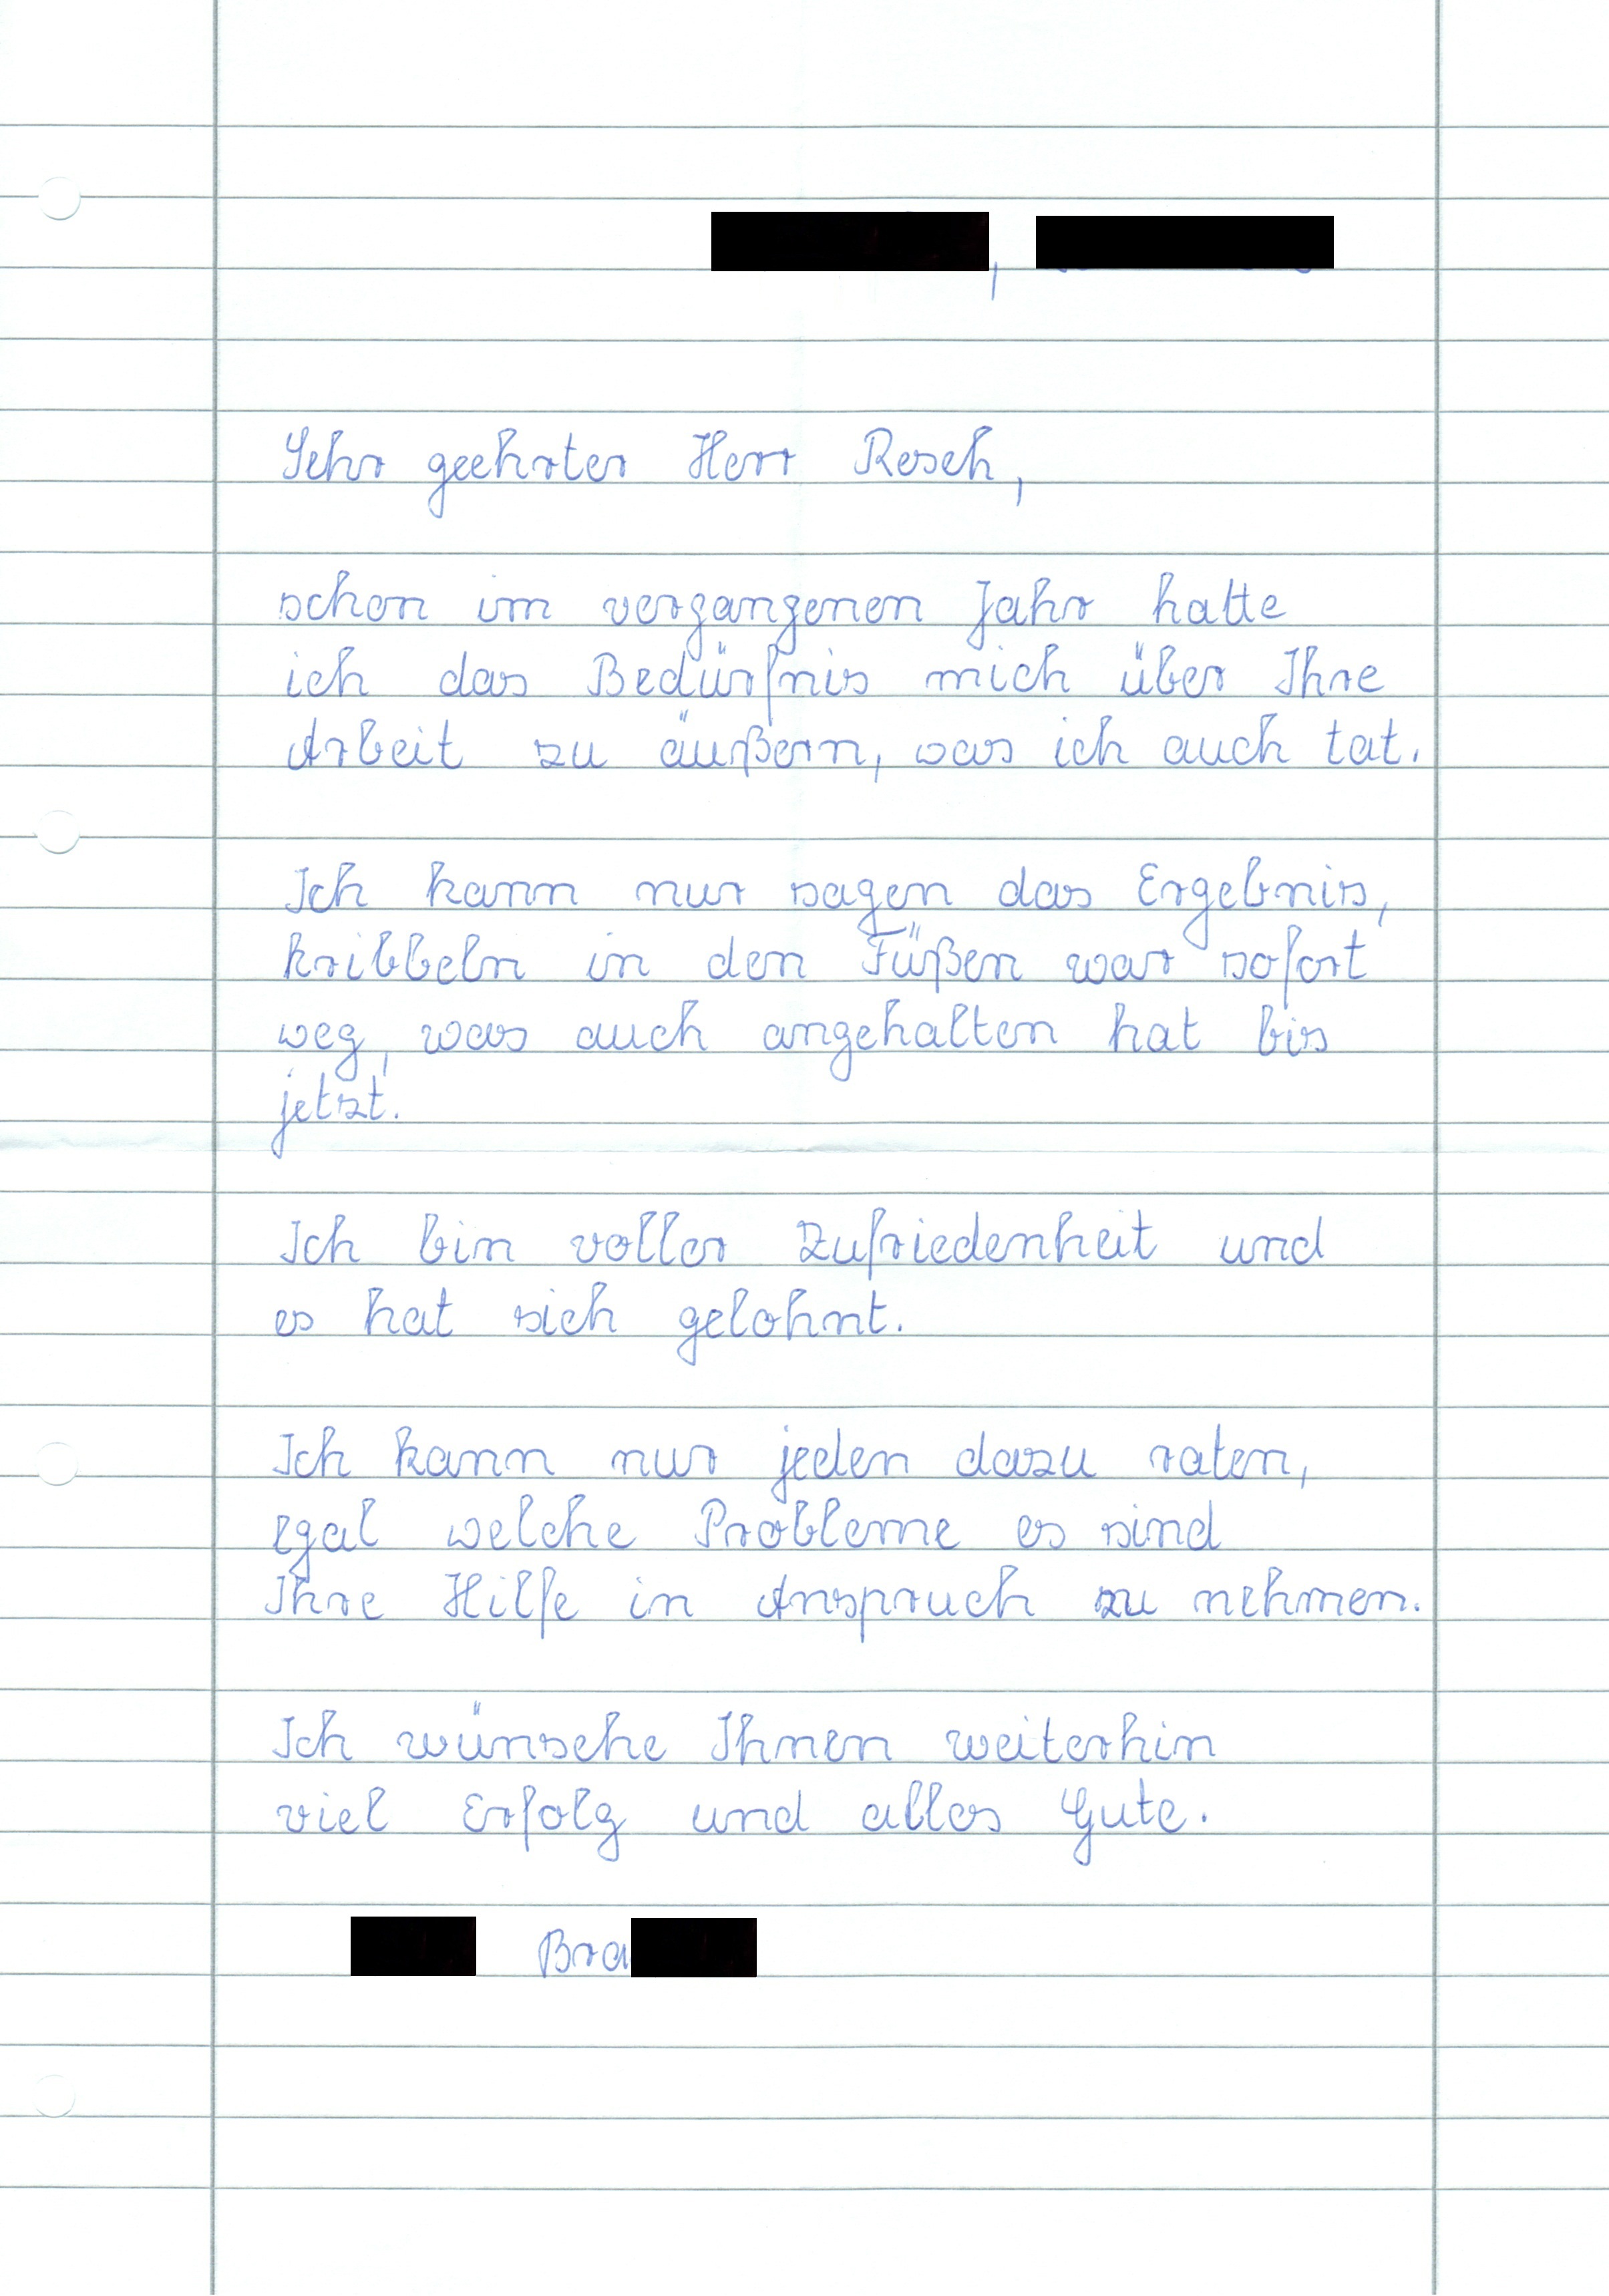 ,
Sehr geehrter Herr Resch,
schon im vergangenen Jahr hatte
ich das Bedürfnis mich über Ihre
Arbeit zu äußern, was ich auch tat.
Ich kann nur sagen das Ergebnis,
kribbeln in den Füßen war sofort
weg, was auch angehalten hat bis
jetzt.
Ich bin voller Zufriedenheit und
es hat sich gelohnt.
Ich kann nur jeden dazu raten,
egal welche Probleme es sind
Ihre Hilfe in Anspruch zu nehmen.
Ich wünsche Ihnen weiterhin
viel Erfolg und alles Gute.
Bra